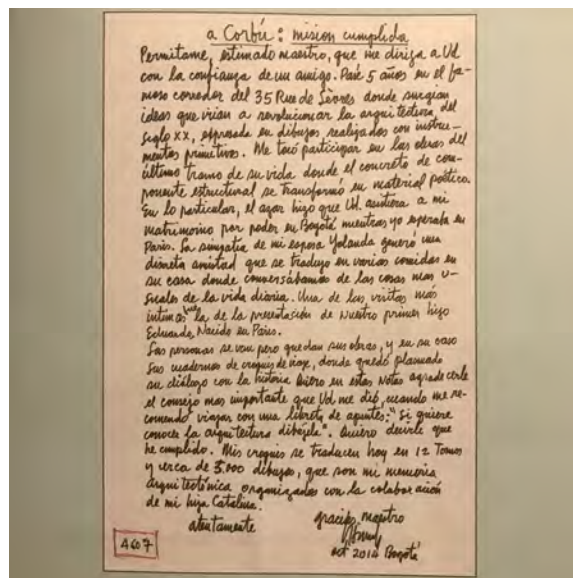 a Corbu: mision cumplida
Permitame, estimado maestro, que me dirija a Ud
con la confianza de un amigo. Pasé 5 años en el fa-
moso corredor del 35 Rue de Sèvres donde surgian
ideas que irian a revolucionar la arquitectura del
siglo XX, expresada en dibujos realizados con instru-
mentos primitivos. Me tocó participar en las obras del
último tramo de su vida donde el concreto de com-
ponente estructural se transformó en material poético.
En lo particular, el azar hizo que Ud. asistiera a mi
matrimonio por poder en Bogotá mientras yo esperaba en
Paris. La simpatia de mi esposa Yolanda generó una
discreta amistad que se tradujo en varias comidas en
su casa donde conversábamos de las cosas mas u-
suales de la vida diaria. Una de las visitas más
intimas fué la de la presentación de nuestro primer hijo
Eduardo, Nacido en Paris.
Las personas se van pero quedan sus obras, y en su caso
sus cuadernos de croquis de viaje, donde quedó plasmado
su diálogo con la historia. Quiero en estas notas agradecerle
el consejo mas importante que Ud me dió, cuando me re-
comendó viajar con una libreta de apuntes: "Si quiere
conocer la arquitectura dibújela". Quiero decirle que
he cumplido. Mis croquis se traducen hoy en 12 Tomos
y cerca de 5.000 dibujos, que son mi memoria
arquitectónica organizados con la colaboración
de mi hija Catalina.
atentamente gracias, maestro
oct 2014 Bogotá
4607